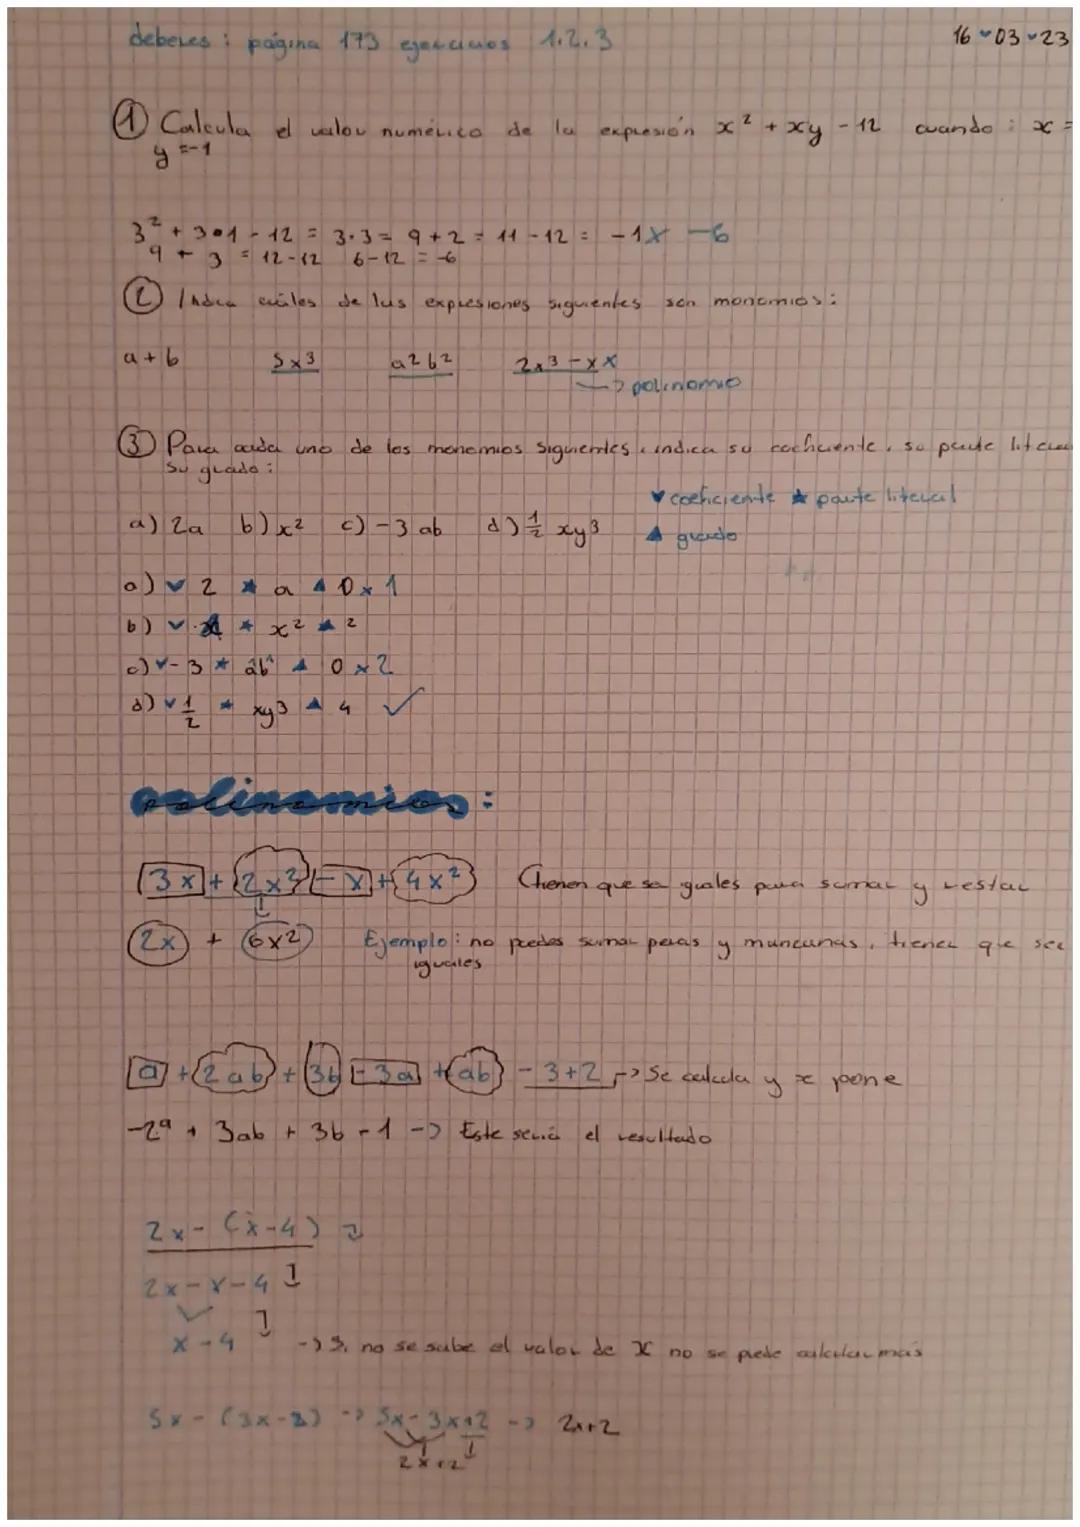 deberes : página 173 ejercicios 1.2.3 16 03 23
① Calcula el valor numérico de la expresión x² + xy - 12 cuando : x =
y = -1
3² + 3•1 - 12 = 3·3 = 9 + 2 = 11 - 12 = -1 x -6
9 + 3 = 12 - 12 6 - 12 = -6
② Indica cuáles de las expresiones siguientes son monomios:
a + b 5x³ a²b² 2x³ - x x
→ polinomio
③ Para cada uno de los monomios siguientes, indica su coeficiente, su parte
su grado :
♥ coeficiente ★ parte literal
a) 2a b) x² c) -3 ab d) ½ xy³ ▲ grado
a) ♥ 2 ★ a ▲ 0 x 1
b) ♥ ★ x² ▲ 2
c) ♥ -3 ★ ab ▲ 0 x 2
d) ♥ ½ ★ xy³ ▲ 4 ✓
polinomios:
3x + 2x² - x + 4x² (tienen que se guales para sumar y restar
2x + 6x² Ejemplo: no puedes sumar peras y manzanas, tienen que ser
iguales
a + 2ab + 3b - 3a + ab - 3 + 2 → Se calcula y se pone
-2a + 3ab + 3b - 1 → Este sería el resultado
2x - (x - 4)
2x - x - 4
x - 4 → Si no se sabe el valor de X no se puede calcular más
5x - (3x - 2) → 5x - 3x + 2 → 2x + 2
2x + 2